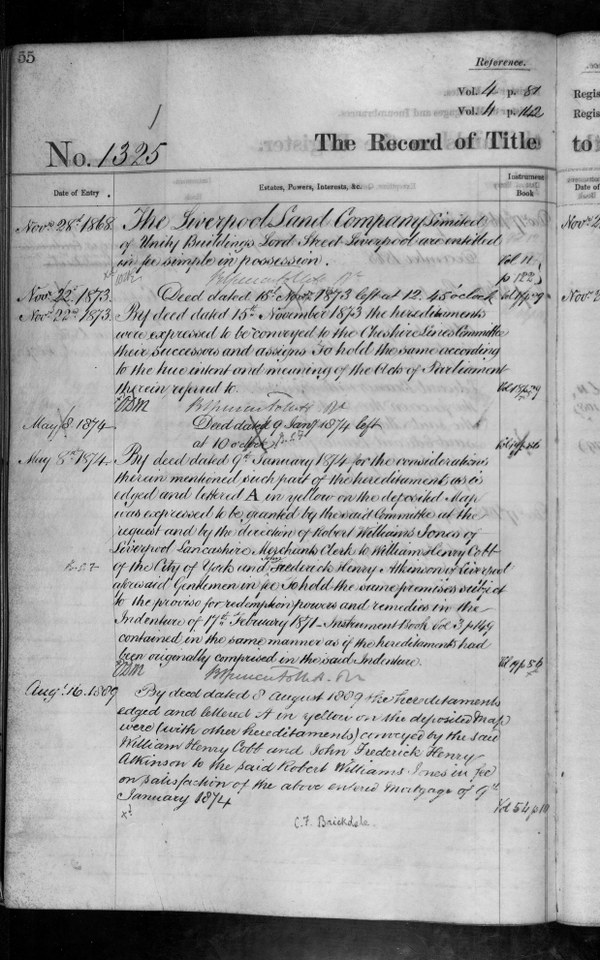 55
Reference.
Vol. 4 p. 81
Vol. 4 p. 142
No. 1325
The Record of Title
Date of Entry
Estates, Powers, Interests, &c.
Instrument Book
Novr 28th 1868
The Liverpool Land Company Limited
of Unity Buildings Lord Street Liverpool are entitled
in fee simple in possession.
Vol 11
p 122
Novr 22d 1873.
Deed dated 15th Novr 1873 left at 12. 45 o'clock
Novr 22nd 1873.
By deed dated 15th November 1873 the hereditaments
were expressed to be conveyed to the Cheshire Lines Committee
their successors and assigns To hold the same according
to the true intent and meaning of the Acts of Parliament
therein referred to.
May 8. 1874
Deed dated 9 Jany 1874 left
at 10 o'clock
May 8th 1874
By deed dated 9th January 1874 for the considerations
therein mentioned such part of the hereditaments as is
edged and lettered A in yellow on the deposited Map
was expressed to be granted by the said Committee at the
request and by the direction of Robert Williams Jones of
Liverpool Lancashire Merchants Clerk to William Henry Cobb
of the City of York and John Frederick Henry Atkinson of Liverpool
aforesaid Gentlemen in fee To hold the same premises subject
to the proviso for redemption powers and remedies in the
Indenture of 17th February 1871 Instrument Book Vol 3 p 149
contained in the same manner as if the hereditaments had
been originally comprised in the said Indenture.
Augt 16. 1889
By deed dated 8 August 1889 the hereditaments
edged and lettered A in yellow on the deposited Map
were (with other hereditaments) conveyed by the said
William Henry Cobb and John Frederick Henry
Atkinson to the said Robert Williams Jones in fee
on satisfaction of the above entered Mortgage of 9th
January 1874
Vol 54 p 10
C. F. Brickdale.